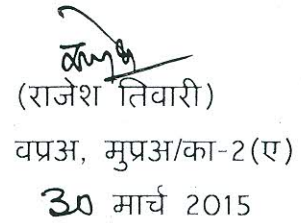 (राजेश तिवारी)
वप्रअ, मुप्रअ/का-2(ए)
30 मार्च 2015